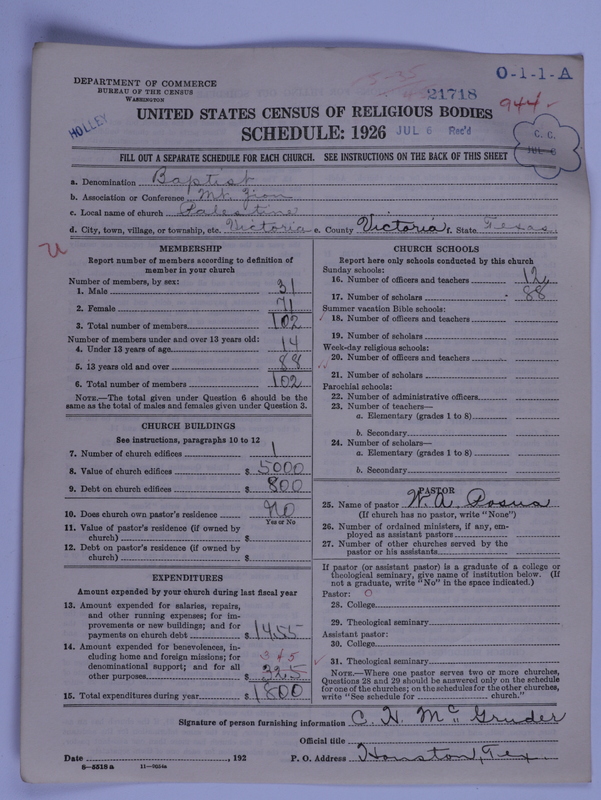 O-1-1-A
DEPARTMENT OF COMMERCE
BUREAU OF THE CENSUS
WASHINGTON
5-35
21718
944
HOLLEY
UNITED STATES CENSUS OF RELIGIOUS BODIES
SCHEDULE: 1926 JUL 6 Rec'd
C. C.
JUL 6
FILL OUT A SEPARATE SCHEDULE FOR EACH CHURCH. SEE INSTRUCTIONS ON THE BACK OF THIS SHEET
a. Denomination Baptist
b. Association or Conference Mt. Zion
c. Local name of church Palestine
d. City, town, village, or township, etc. Victoria e. County Victoria f. State Texas
MEMBERSHIP
Report number of members according to definition of
member in your church
Number of members, by sex:
1. Male 31
2. Female 71
3. Total number of members 102
Number of members under and over 13 years old:
4. Under 13 years of age 14
5. 13 years old and over 88
6. Total number of members 102
NOTE.—The total given under Question 6 should be the
same as the total of males and females given under Question 3.
CHURCH BUILDINGS
See instructions, paragraphs 10 to 12
7. Number of church edifices 1
8. Value of church edifices $ 5000
9. Debt on church edifices $ 800
10. Does church own pastor's residence No
Yes or No
11. Value of pastor's residence (if owned by
church) $
12. Debt on pastor's residence (if owned by
church) $
EXPENDITURES
Amount expended by your church during last fiscal year
13. Amount expended for salaries, repairs,
and other running expenses; for im-
provements or new buildings; and for
payments on church debt $ 1455
14. Amount expended for benevolences, in-
cluding home and foreign missions; for
denominational support; and for all
other purposes $ 325
345
15. Total expenditures during year $ 1800
CHURCH SCHOOLS
Report here only schools conducted by this church
Sunday schools:
16. Number of officers and teachers 12
17. Number of scholars 88
Summer vacation Bible schools:
18. Number of officers and teachers
19. Number of scholars
Week-day religious schools:
20. Number of officers and teachers
21. Number of scholars
Parochial schools:
22. Number of administrative officers
23. Number of teachers—
a. Elementary (grades 1 to 8)
b. Secondary
24. Number of scholars—
a. Elementary (grades 1 to 8)
b. Secondary
PASTOR
25. Name of pastor W. A.
(If church has no pastor, write "None")
26. Number of ordained ministers, if any, em-
ployed as assistant pastors
27. Number of other churches served by the
pastor or his assistants
If pastor (or assistant pastor) is a graduate of a college or
theological seminary, give name of institution below. (If
not a graduate, write "No" in the space indicated.)
Pastor: 0
28. College
29. Theological seminary
Assistant pastor:
30. College
31. Theological seminary
NOTE.—Where one pastor serves two or more churches,
Questions 28 and 29 should be answered only on the schedule
for one of the churches; on the schedules for the other churches,
write "See schedule for church."
Signature of person furnishing information C. H. McGruder
Official title
Date , 192 P. O. Address Houston, Tex
8-5518 a 11-7034a